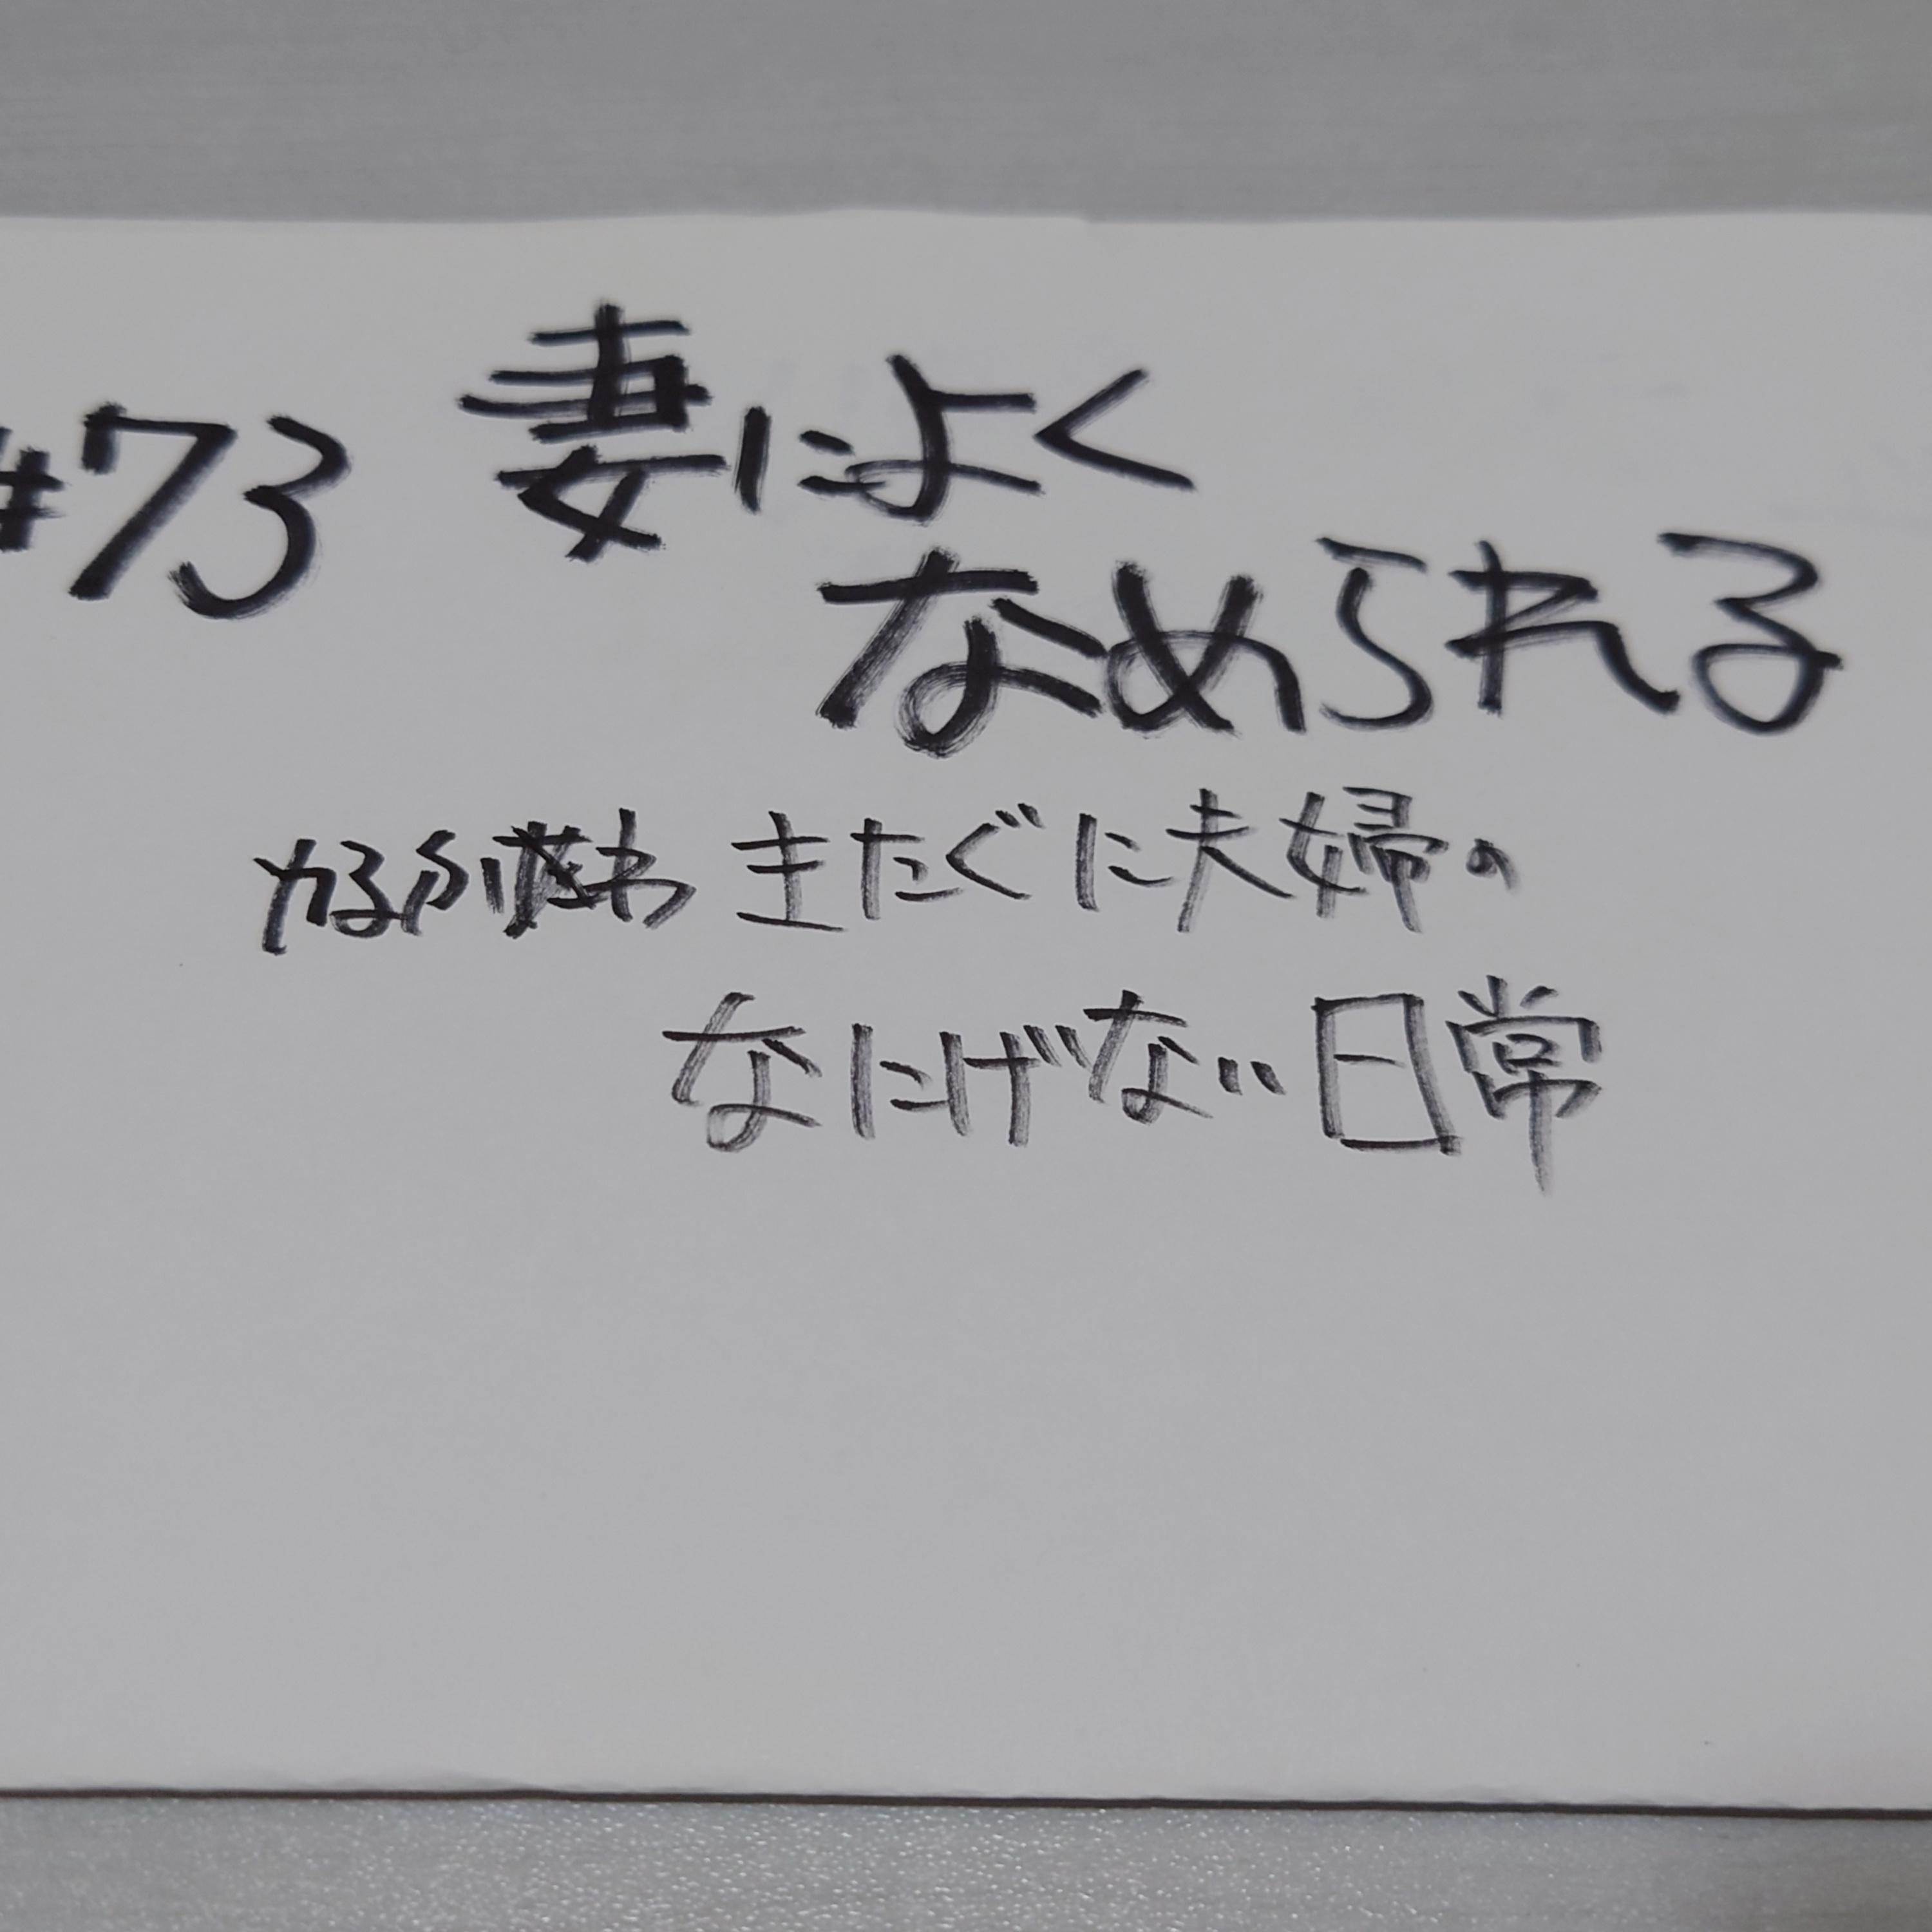 #73 妻によく
なめられる
きたぐに夫婦の
なにげない日常